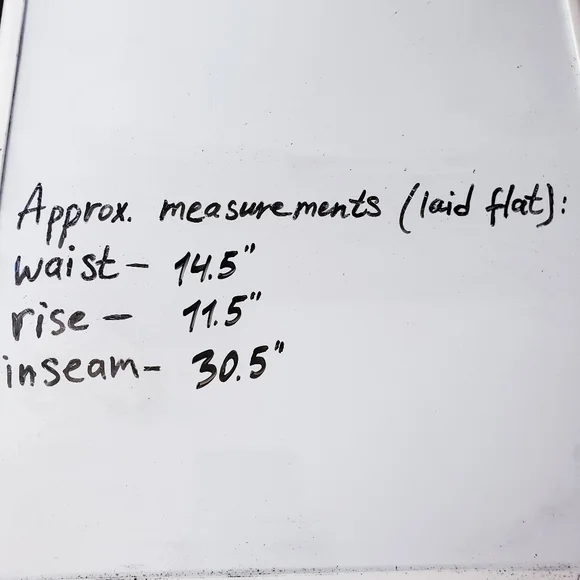 Approx. measurements (laid flat):
waist - 14.5"
rise - 11.5"
inseam - 30.5"